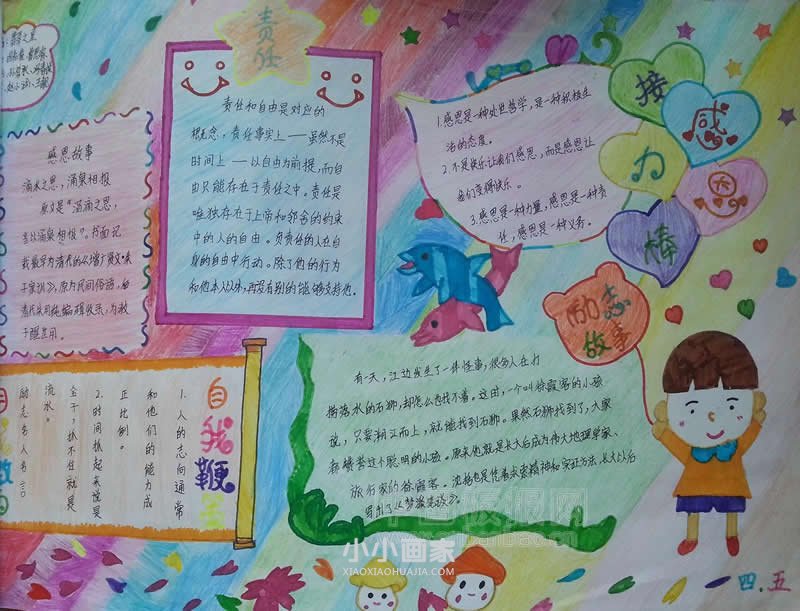 责任
责任和自由是对应的
概念，责任事实上——虽然不是
时间上——以自由为前提，而自
由只能存在于责任之中。责任是
唯独存在于上帝和邻舍的约束
中的人的自由。负责任的人在自
身的自由中行动。除了他的行为
和他本人以外，再没有别的能够支持他。
感恩故事
滴水之恩，涌泉相报
原文是“滴滴之恩，
当以涌泉相报”。书面记
载最早为清代的《增广贤文·朱
子家训》，原为民间俗语，
于醒世用。
1.感恩是一种处世哲学，是一种积极生
活的态度。
2.不是快乐让我们感恩，而是感恩让
我们变得快乐。
3.感恩是一种力量，感恩是一种责
任，感恩是一种义务。
感恩
接力棒
励志
故事
有一天，江边发生了一件怪事，很多人在打
捞落水的石狮，却怎么也找不着。这时，一个叫徐霞客的小孩
说，只要朔江而上，就能找到石狮。果然石狮找到了，大家
都赞赏这个聪明的小孩。原来他就是长大后成为伟大地理学家、
旅行家的徐霞客。沈括也是凭着求索精神和实证方法，长大以后
写出了《梦溪笔谈》。
自我鞭
1.人的志向通常
和他们的能力成
正比例。
2.时间抓起来说是
金子，抓不住就是
流水。
励志名人名言
小小画家
XIAOXIAOHUAJIA.COM
四.五